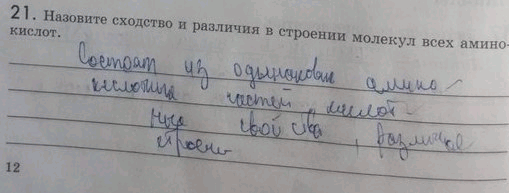 21. Назовите сходство и различия в строении молекул всех амино-
кислот.
Состоят из одынаковых амино
кислотных частей, кислот
ные свой ства, различное
строен
12